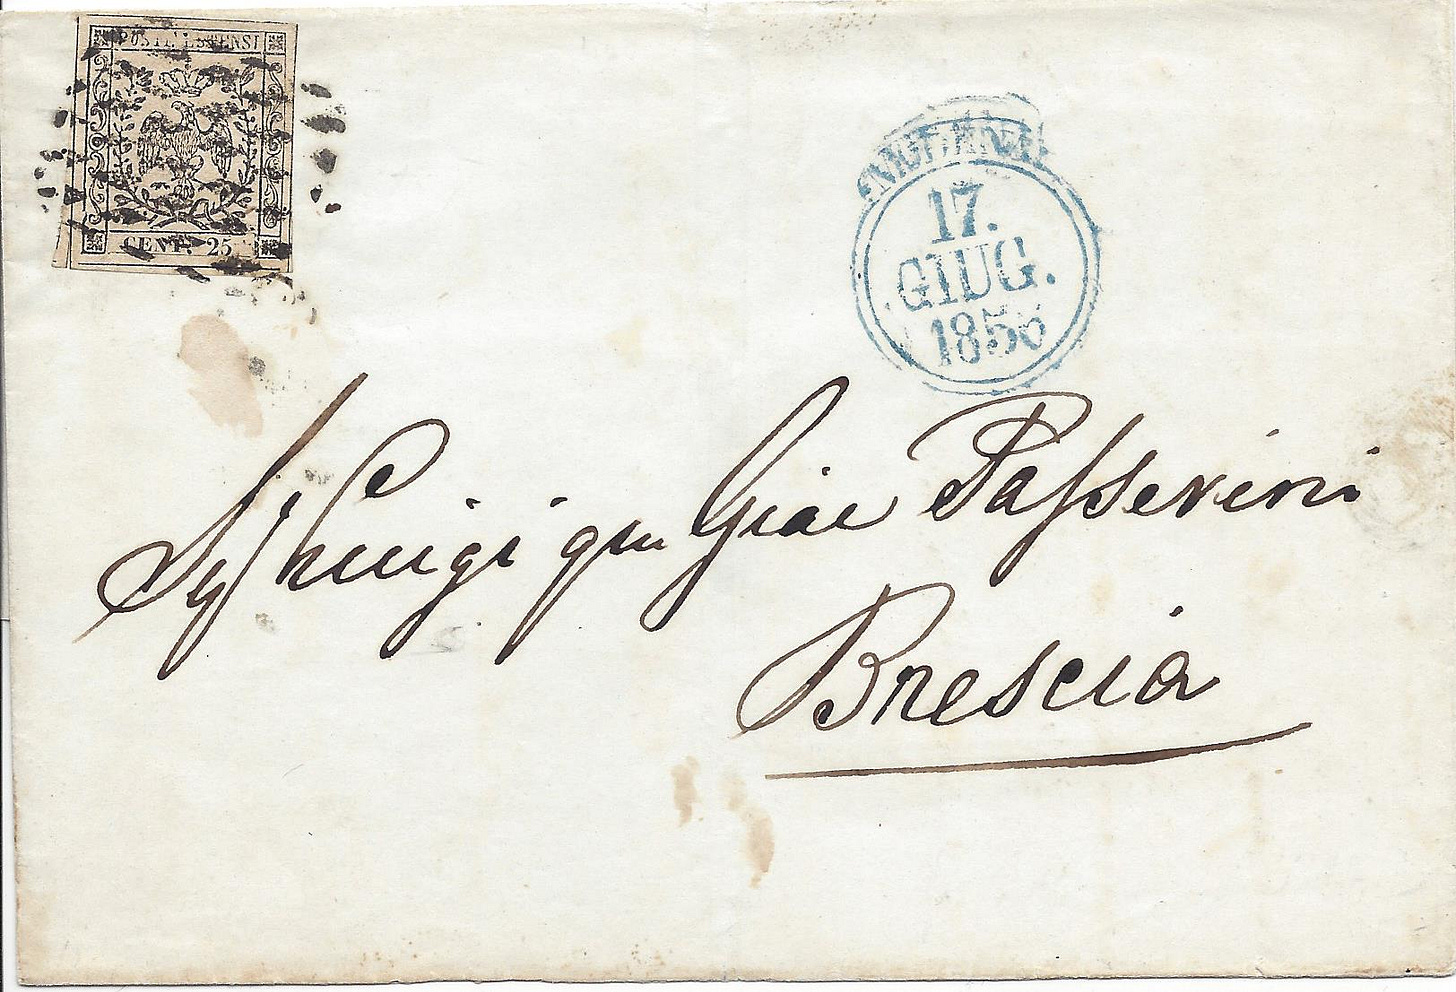 POSTE ESTENSI
CENT. 25
17.
GIUG.
1856
Sig Luigi qm Giac Passerini
Brescia